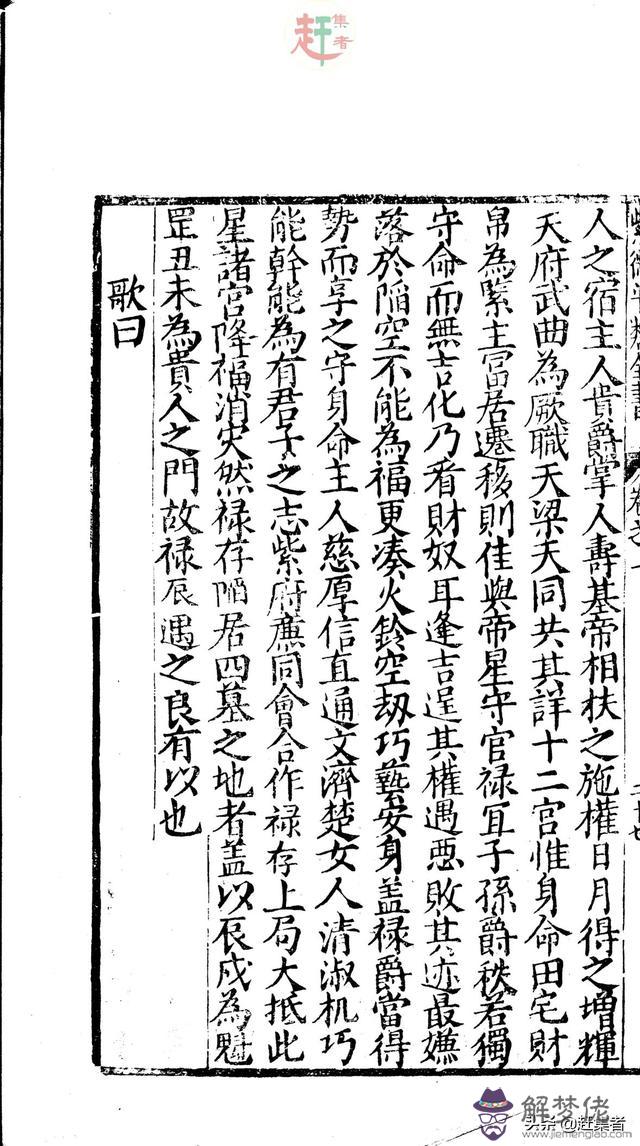 赶集者
人之宿主人貴爵掌人壽基帝相扶之施權日月得之增輝
天府武曲為厥職天梁天同共其詳十二宮惟身命田宅財
帛為緊主富居遷移則佳與帝星守官禄宜子孫爵秩若獨
守命而無吉化乃看財奴耳逢吉逞其權遇惡敗其迹最嫌
落於陥空不能為福更凑火鈴空刼巧藝安身盖禄爵當得
勢而享之守身命主人慈厚信直通文濟楚女人清淑机巧
能幹能為有君子之志紫府廉同會合作禄存上局大抵此
星諸宮降福消灾然禄存陥居四墓之地者盖以辰戍為魁
罡丑未為貴人之門故禄辰遇之良有以也
歌曰
解梦佬
www.jiemenglao.com
头条@赶集者